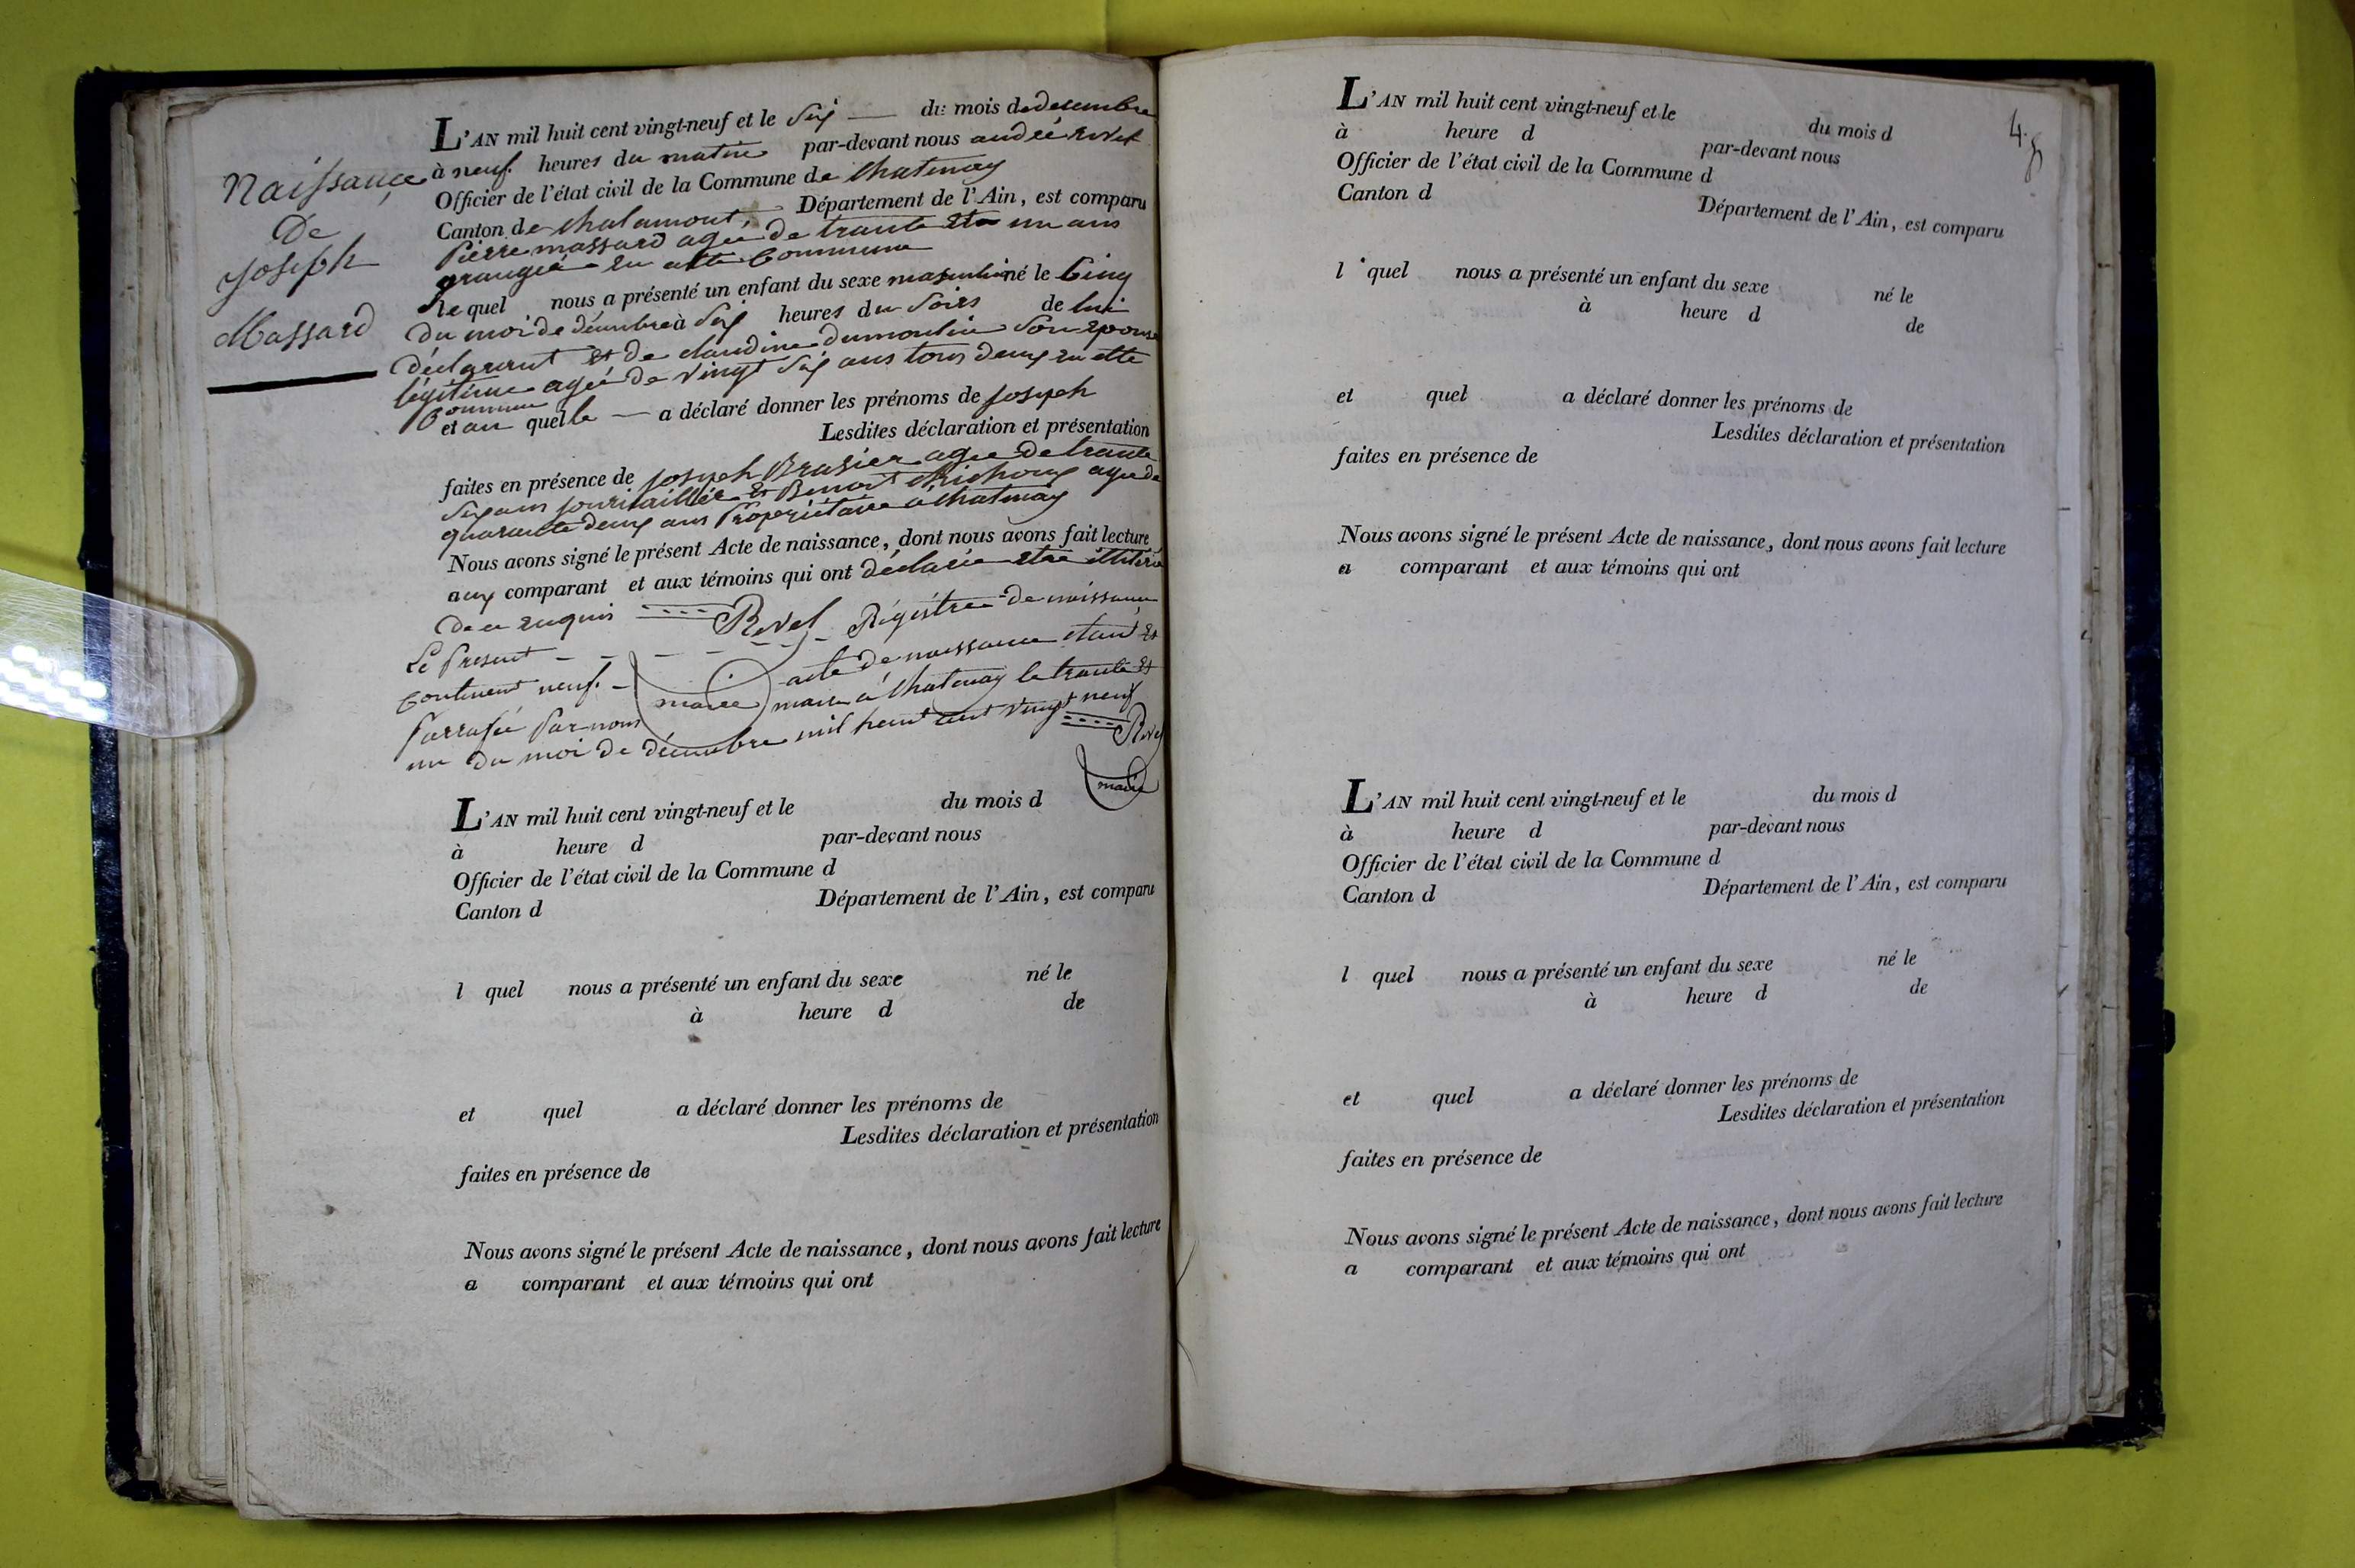 Naissance
De
Joseph
Massard
L'AN mil huit cent vingt-neuf et le Six du mois de desembre
à neuf heures du matin par-devant nous andré Revel
Officier de l'état civil de la Commune de Chatenay
Canton de Chalamont, Département de l'Ain, est comparu
Pierre massard agée de trante et un ans
grangée en cette Commune
le quel nous a présenté un enfant du sexe masculin né le Cinq
du moi de décembre à Six heures du Soirs de lui
déclarant Et de claudine dumoulin Son Epouse
légitime agée de vingt Six ans tous deux en cette
Commune
et au quelle a déclaré donner les prénoms de Joseph
Lesdites déclaration et présentation
faites en présence de Joseph Brasier agée de trante
Six ans journaillier Et Benoit Michoux agée de
quarante deux ans Propriétaire à Chatenay
Nous avons signé le présent Acte de naissance, dont nous avons fait lecture
aux comparant et aux témoins qui ont déclarée Etre illitéré
De ce Enquis Revel
Le Present Régistre de naissance
Contenent neuf acte de naissance etant Et
Parrafée Par nous maire maire à Chatenay le trante Et
un du moi de décembre mil heuit cent vingt neuf
Revel
maire
L'AN mil huit cent vingt-neuf et le du mois d
à heure d par-devant nous
Officier de l'état civil de la Commune d
Canton d Département de l'Ain, est comparu
l quel nous a présenté un enfant du sexe né le
à heure d de
et quel a déclaré donner les prénoms de
Lesdites déclaration et présentation
faites en présence de
Nous avons signé le présent Acte de naissance, dont nous avons fait lecture
a comparant et aux témoins qui ont
4.
L'AN mil huit cent vingt-neuf et le du mois d
à heure d par-devant nous
Officier de l'état civil de la Commune d
Canton d Département de l'Ain, est comparu
l quel nous a présenté un enfant du sexe né le
à heure d de
et quel a déclaré donner les prénoms de
Lesdites déclaration et présentation
faites en présence de
Nous avons signé le présent Acte de naissance, dont nous avons fait lecture
a comparant et aux témoins qui ont
L'AN mil huit cent vingt-neuf et le du mois d
à heure d par-devant nous
Officier de l'état civil de la Commune d
Canton d Département de l'Ain, est comparu
l quel nous a présenté un enfant du sexe né le
à heure d de
et quel a déclaré donner les prénoms de
Lesdites déclaration et présentation
faites en présence de
Nous avons signé le présent Acte de naissance, dont nous avons fait lecture
a comparant et aux témoins qui ont